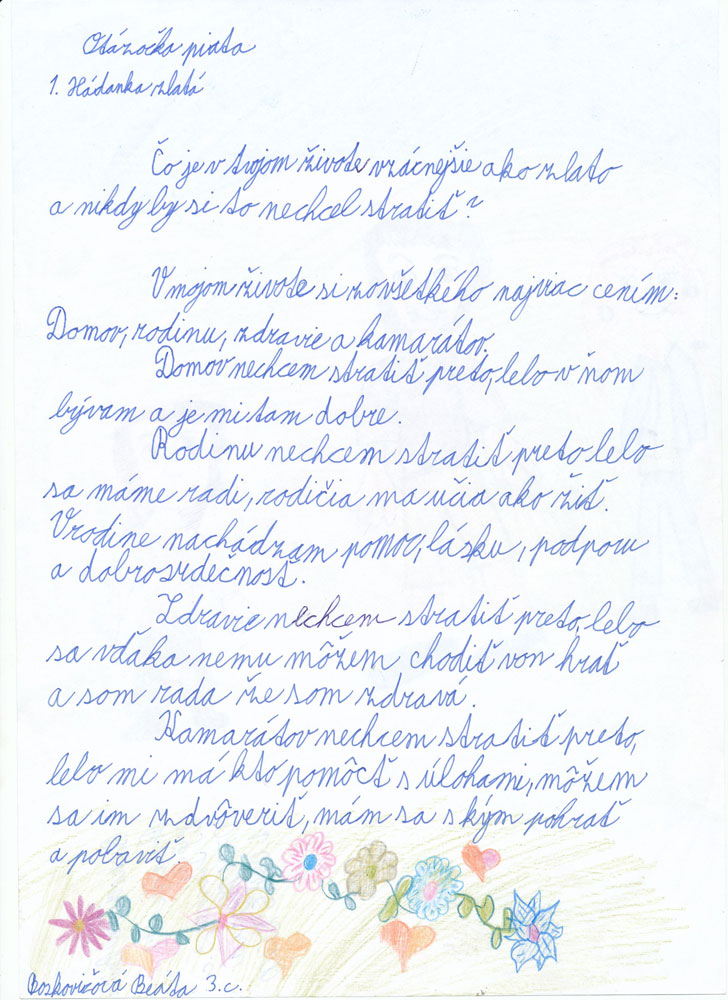 Otázočka piata
1. Hádanka zlatá
Čo je v tvojom živote vzácnejšie ako zlato
a nikdy by si to nechcel stratiť?
V mojom živote si zo všetkého najviac cením:
Domov, rodinu, zdravie a kamarátov.
Domov nechcem stratiť preto, lebo v ňom
bývam a je mi tam dobre.
Rodinu nechcem stratiť preto lebo
sa máme radi, rodičia ma učia ako žiť.
V rodine nachádzam pomoc, lásku, podporu
a dobrosrdečnosť.
Zdravie nechcem stratiť preto, lebo
sa vďaka nemu môžem chodiť von hrať
a som rada že som zdravá.
Kamarátov nechcem stratiť preto,
lebo mi má kto pomôcť s úlohami, môžem
sa im zdvôveriť, mám sa s kým pohrať
a pobaviť.
Boskovičová Beáta 3.c.